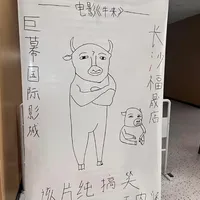 电影《牛来》
巨幕国际影城
长沙福晟店
纯搞笑